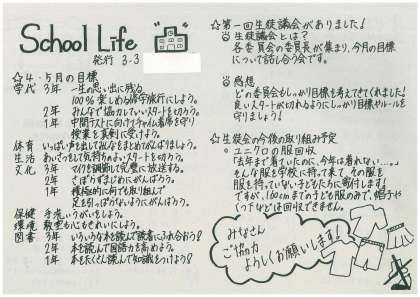 School Life
発行 3-3
☆4・5月の目標
学代 3年 一生の思い出に残る
100%楽しめる修学旅行にしよう。
2年 みんなで協力していいスタートを切ろう。
1年 中間テストに向けてチャイム着席を守り
授業を真剣に受けよう。
体育 いっぱい声を出してみんなをまとめがんばりましょう。
生活 あいさつをして気持ちのよいスタートを切ろう。
文化 3年 マイクを調節して完璧に放送する。
2年 さぼらずまじめにがんばろう。
1年 積極的に何でも取り組んで
足を引っぱがないようにがんばろう。
保健 手洗い、うがいをしよう。
環境 教室も心もきれいにしよう。
図書 3年 いろいろな本を読んで読書にふれ合おう!
2年 本を読んで国語力を高めよう。
1年 本をたくさん読んで知識をつけよう!
☆第一回生徒議会がありました!
生徒議会とは?
各委員会の委員長が集まり、今月の目標
について話し合う会です。
感想
どの委員会もしっかり目標を考えてきてくれました!
良いスタートが切れるようにしっかり目標やルールを
守りましょう!
☆生徒会の今後の取り組み予定
ユニクロの服回収
「去年まで着ていたのに、今は着れない…。」
そんな服を学校に持って来て、その服を
服を持っていない子どもたちに寄付します!
ですが、160cmまでの子ども服のみで、帽子や
くつ下などは回収できません。
みなさん
ご協力
よろしくお願いします!